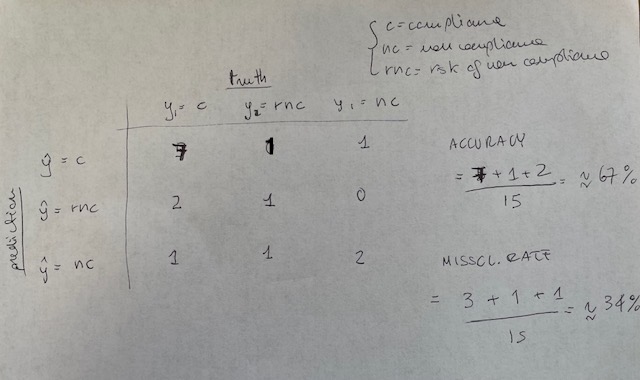 c = compliance
nc = non compliance
rnc = risk of non compliance
truth
y₁ = c y₂ = rnc y₁ = nc
prediction
ŷ = c 7 1 1
ŷ = rnc 2 1 0
ŷ = nc 1 1 2
ACCURACY
= 7 + 1 + 2 / 15 = ≈ 67%
MISSCL. RATE
= 3 + 1 + 1 / 15 = ≈ 34%